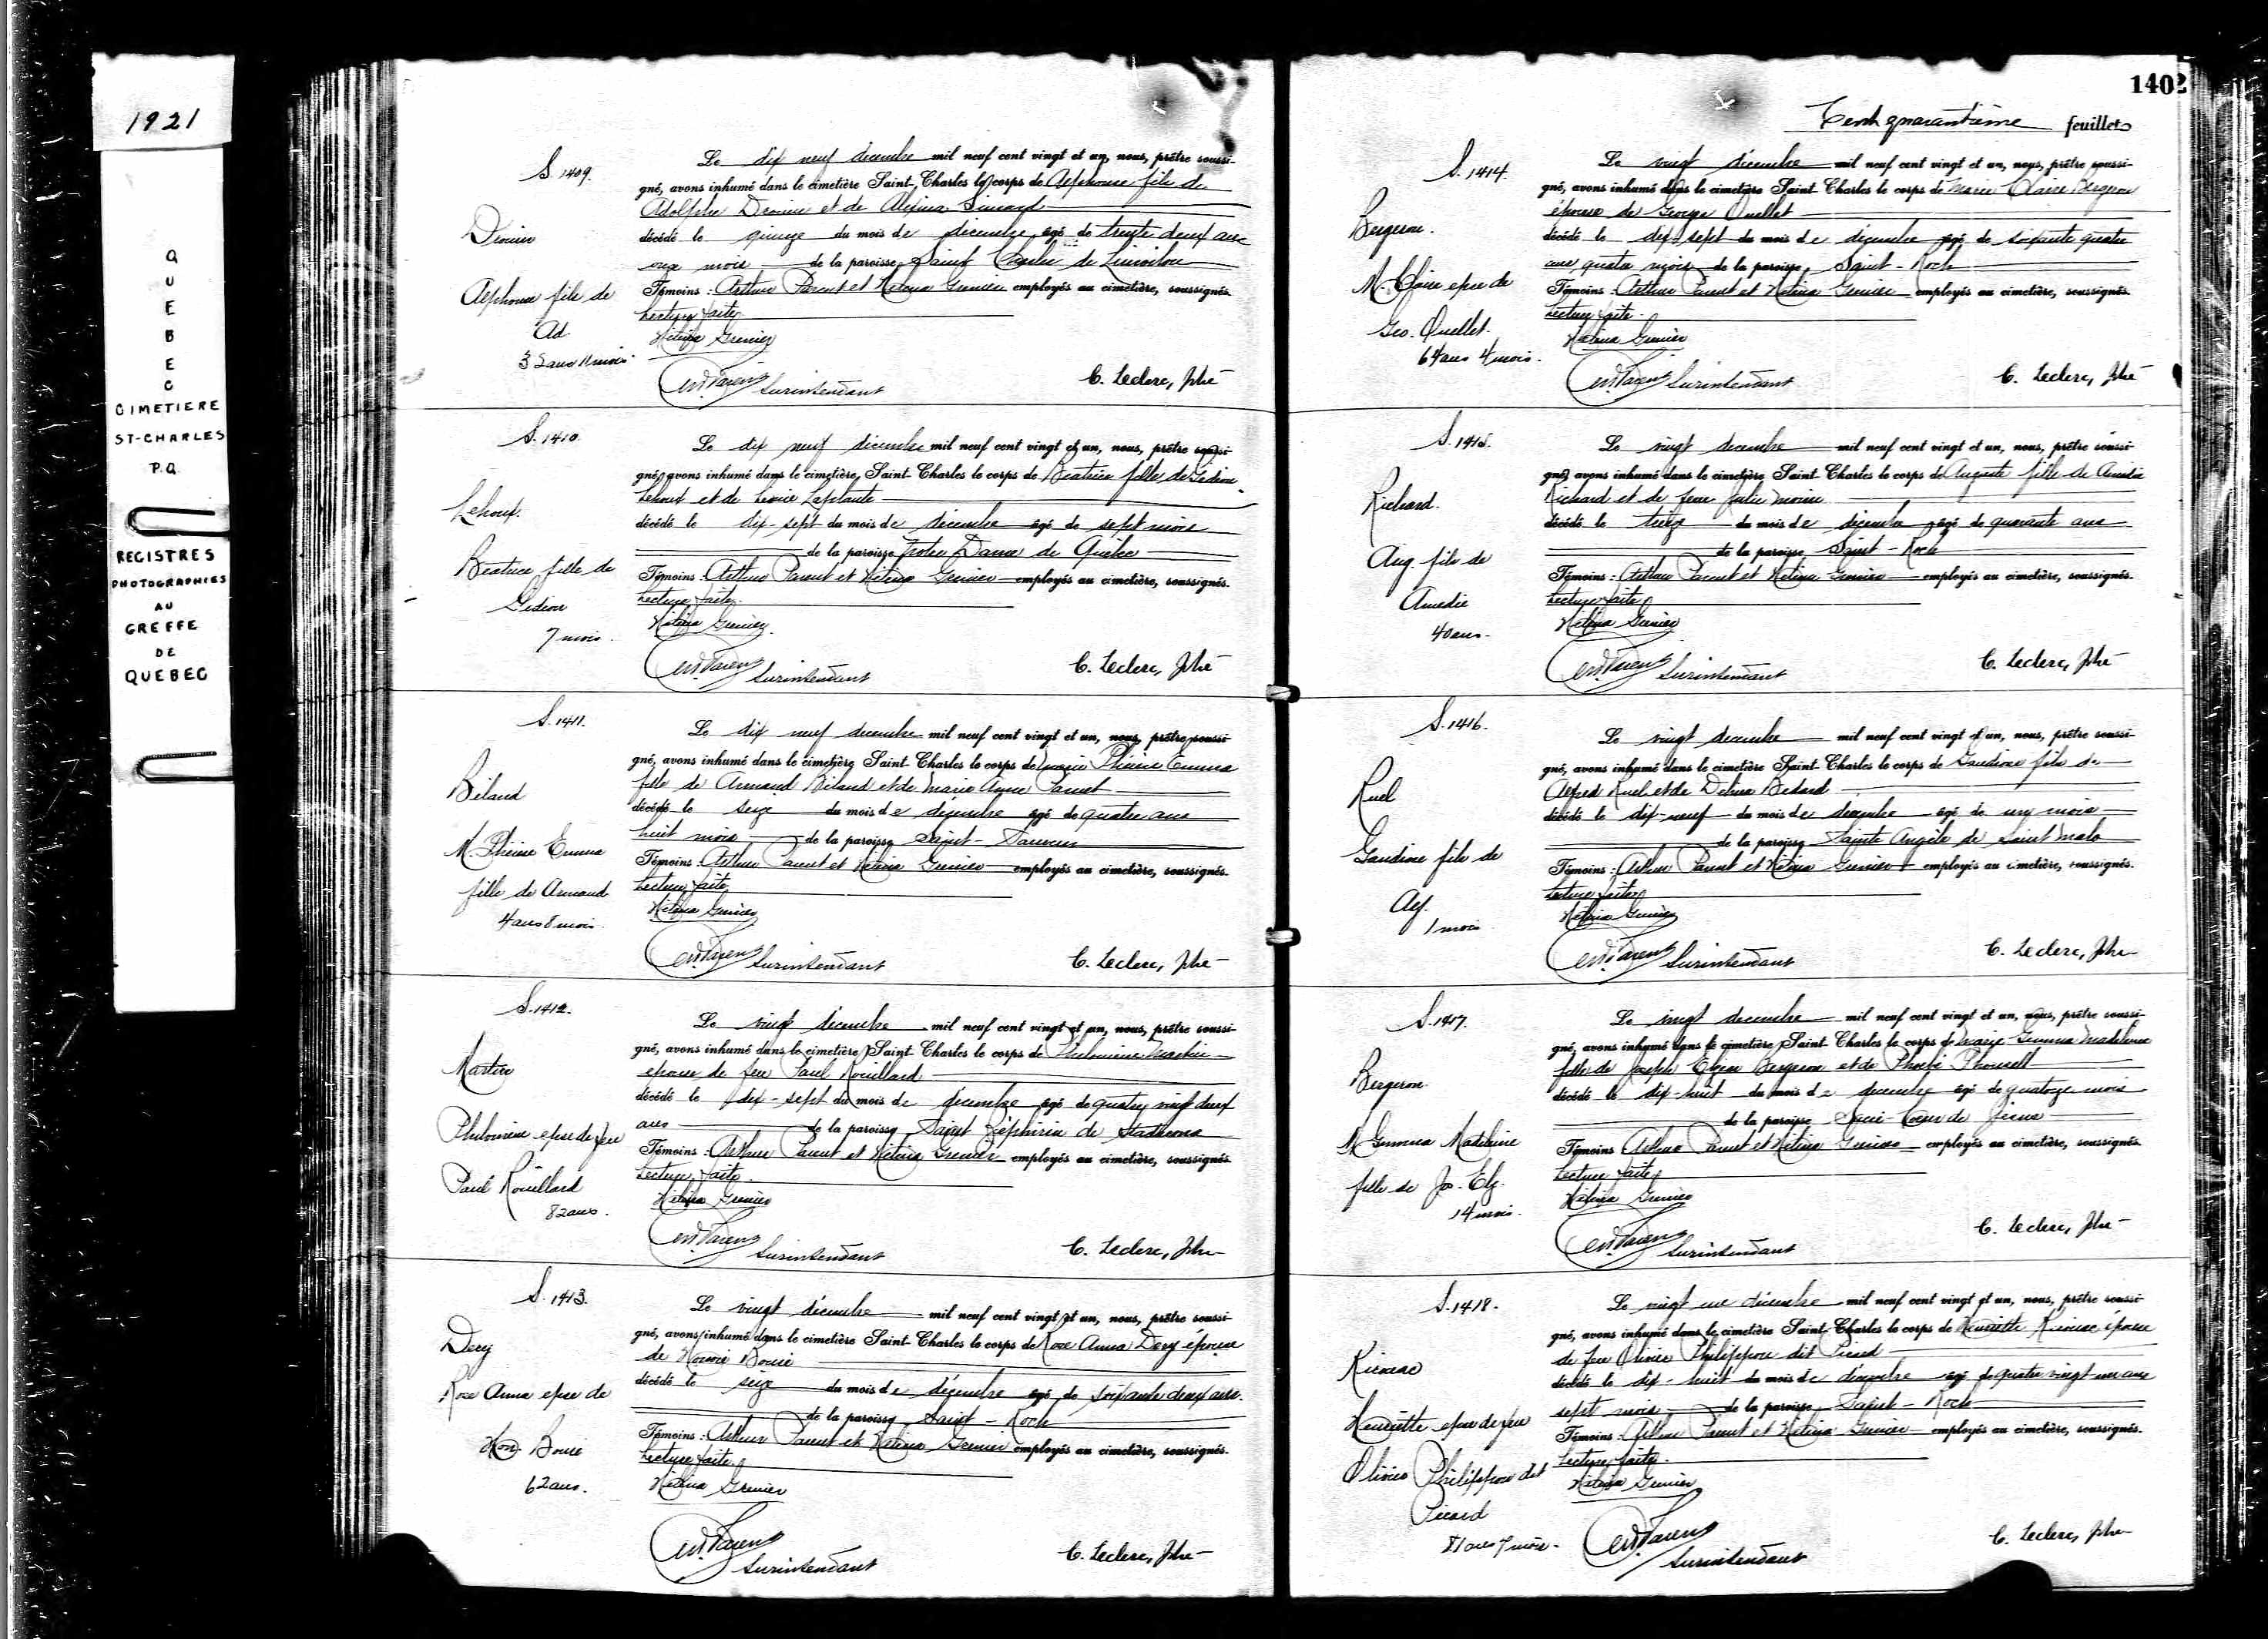 1921
QUEBEC
CIMETIERE
ST-CHARLES
P.Q.
REGISTRES
PHOTOGRAPHIES
AU
GREFFE
DE
QUEBEC
S. 1409.
Drouin
Alphonse fils de
Ad.
32 ans 11 mois.
Le dix neuf décembre mil neuf cent vingt et un, nous, prêtre soussi-
gné, avons inhumé dans le cimetière Saint-Charles le corps de Alphonse fils de
Adolphe Drouin et de Alexina Simard
décédé le quinze du mois de décembre âgé de trente deux ans
onze mois de la paroisse Saint Charles de Limoilou
Témoins : Arthur Parent et Grenier employés au cimetière, soussignés.
Lecture faite.
Grenier
Parent Surintendant
C. Leclerc, Ptre
S. 1410.
Lehoux.
Béatrice fille de
Gédéon
7 mois.
Le dix neuf décembre mil neuf cent vingt et un, nous, prêtre soussi-
gné, avons inhumé dans le cimetière Saint-Charles le corps de Béatrice fille de Gédéon
Lehoux et de Laplante
décédé le dix-sept du mois de décembre âgé de sept mois
de la paroisse Notre Dame de Québec
Témoins : Arthur Parent et Grenier employés au cimetière, soussignés.
Lecture faite.
Grenier
Parent Surintendant
C. Leclerc, Ptre
S. 1411.
Béland
M. Emma
fille de Armand
4 ans 8 mois.
Le dix neuf décembre mil neuf cent vingt et un, nous, prêtre soussi-
gné, avons inhumé dans le cimetière Saint-Charles le corps de Marie Emma
fille de Armand Béland et de Marie Anne Parent
décédé le seize du mois de décembre âgé de quatre ans
huit mois de la paroisse Saint-Sauveur
Témoins : Arthur Parent et Grenier employés au cimetière, soussignés.
Lecture faite
Grenier
Parent Surintendant
C. Leclerc, Ptre
S. 1412.
Martin
Philomène epse de feu
Paul Rouillard
82 ans.
Le vingt décembre mil neuf cent vingt et un, nous, prêtre soussi-
gné, avons inhumé dans le cimetière Saint-Charles le corps de Philomène Martin
épouse de feu Paul Rouillard
décédé le dix-sept du mois de décembre âgé de quatre vingt deux
ans de la paroisse Saint Zéphirin de Stadacona
Témoins : Arthur Parent et Grenier employés au cimetière, soussignés.
Lecture faite.
Grenier
Parent Surintendant
C. Leclerc, Ptre
S. 1413.
Dery
Rose Anna epse de
Hon. Bouié
62 ans.
Le vingt décembre mil neuf cent vingt et un, nous, prêtre soussi-
gné, avons inhumé dans le cimetière Saint-Charles le corps de Rose Anna Dery épouse
de Bouié
décédé le seize du mois de décembre âgé de soixante deux ans.
de la paroisse Saint-Roch
Témoins : Arthur Parent et Grenier employés au cimetière, soussignés.
Lecture faite.
Grenier
Parent
Surintendant
C. Leclerc, Ptre
1402
Cent quarantième feuillets
S. 1414.
Bergeron.
M. Claire epse de
Geo. Ouellet.
64 ans 4 mois.
Le vingt décembre mil neuf cent vingt et un, nous, prêtre soussi-
gné, avons inhumé dans le cimetière Saint-Charles le corps de Marie Claire Bergeron
épouse de George Ouellet
décédé le dix-sept du mois de décembre âgé de soixante quatre
ans quatre mois de la paroisse Saint-Roch
Témoins : Arthur Parent et Grenier employés au cimetière, soussignés.
Lecture faite.
Grenier
Parent Surintendant
C. Leclerc, Ptre
S. 1415.
Richard.
Aug. fils de
Amedie
40 ans.
Le vingt décembre mil neuf cent vingt et un, nous, prêtre soussi-
gné, avons inhumé dans le cimetière Saint-Charles le corps de Auguste fils de Amédée
Richard et de feue Julie Morin
décédé le treize du mois de décembre âgé de quarante ans
de la paroisse Saint-Roch
Témoins : Arthur Parent et Grenier employés au cimetière, soussignés.
Lecture faite
Grenier
Parent Surintendant
C. Leclerc, Ptre
S. 1416.
Ruel
Gaudiose fils de
Alf.
1 mois
Le vingt décembre mil neuf cent vingt et un, nous, prêtre soussi-
gné, avons inhumé dans le cimetière Saint-Charles le corps de Gaudiose fils de
Alfred Ruel et de Delina Bedard
décédé le dix-neuf du mois de décembre âgé de un mois
de la paroisse Sainte Angèle de Saint Malo
Témoins : Arthur Parent et Grenier employés au cimetière, soussignés.
Lecture faite
Grenier
Parent Surintendant
C. Leclerc, Ptre
S. 1417.
Bergeron
M. Gemma Madeleine
fille de Jos. Elz.
14 mois.
Le vingt décembre mil neuf cent vingt et un, nous, prêtre soussi-
gné, avons inhumé dans le cimetière Saint-Charles le corps de Marie Gemma Madeleine
fille de Joseph Elzear Bergeron et de Phoebé
décédé le dix-huit du mois de décembre âgé de quatorze mois
de la paroisse Sacré-Coeur de Jésus
Témoins Arthur Parent et Grenier employés au cimetière, soussignés.
Lecture faite
Grenier
Parent Surintendant
C. Leclerc, Ptre
S. 1418.
Kirouac
Henriette epse de feu
Olivier Philippon dit
Picard
81 ans 7 mois.
Le vingt une décembre mil neuf cent vingt et un, nous, prêtre soussi-
gné, avons inhumé dans le cimetière Saint-Charles le corps de Henriette Kirouac épouse
de feu Olivier Philippon dit Picard
décédé le dix-huit du mois de décembre âgé de quatre vingt un ans
sept mois de la paroisse Saint-Roch
Témoins : Arthur Parent et Grenier employés au cimetière, soussignés.
Lecture faite.
Grenier
Parent
Surintendant
C. Leclerc, Ptre